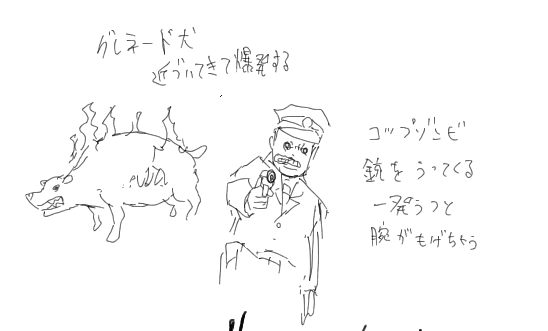 グレネード犬
近づいてきて爆発する
コップゾンビ
銃をうってくる
一発うつと
腕がもげちゃう